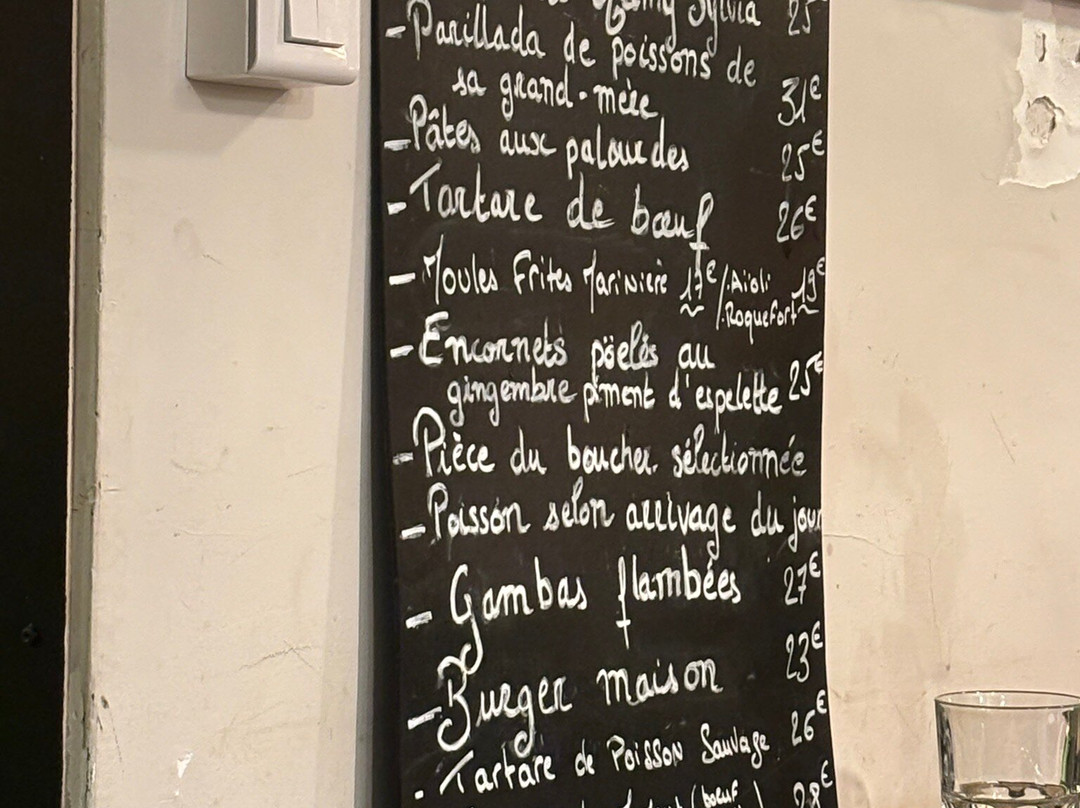 Sylvia 25
-Parillada de poissons de
sa grand-mère 31€
-Pâtes aux palourdes 25€
-Tartare de bœuf 26€
-Moules Frites Marinière 17€/.Aïoli 19€
/.Roquefort
-Encornets pöelés au
gingembre piment d'espelette 25€
-Pièce du boucher sélectionnée
-Poisson selon arrivage du jour
-Gambas flambées 27€
-Burger maison 23€
-Tartare de Poisson Sauvage 26€
(bœuf 28€